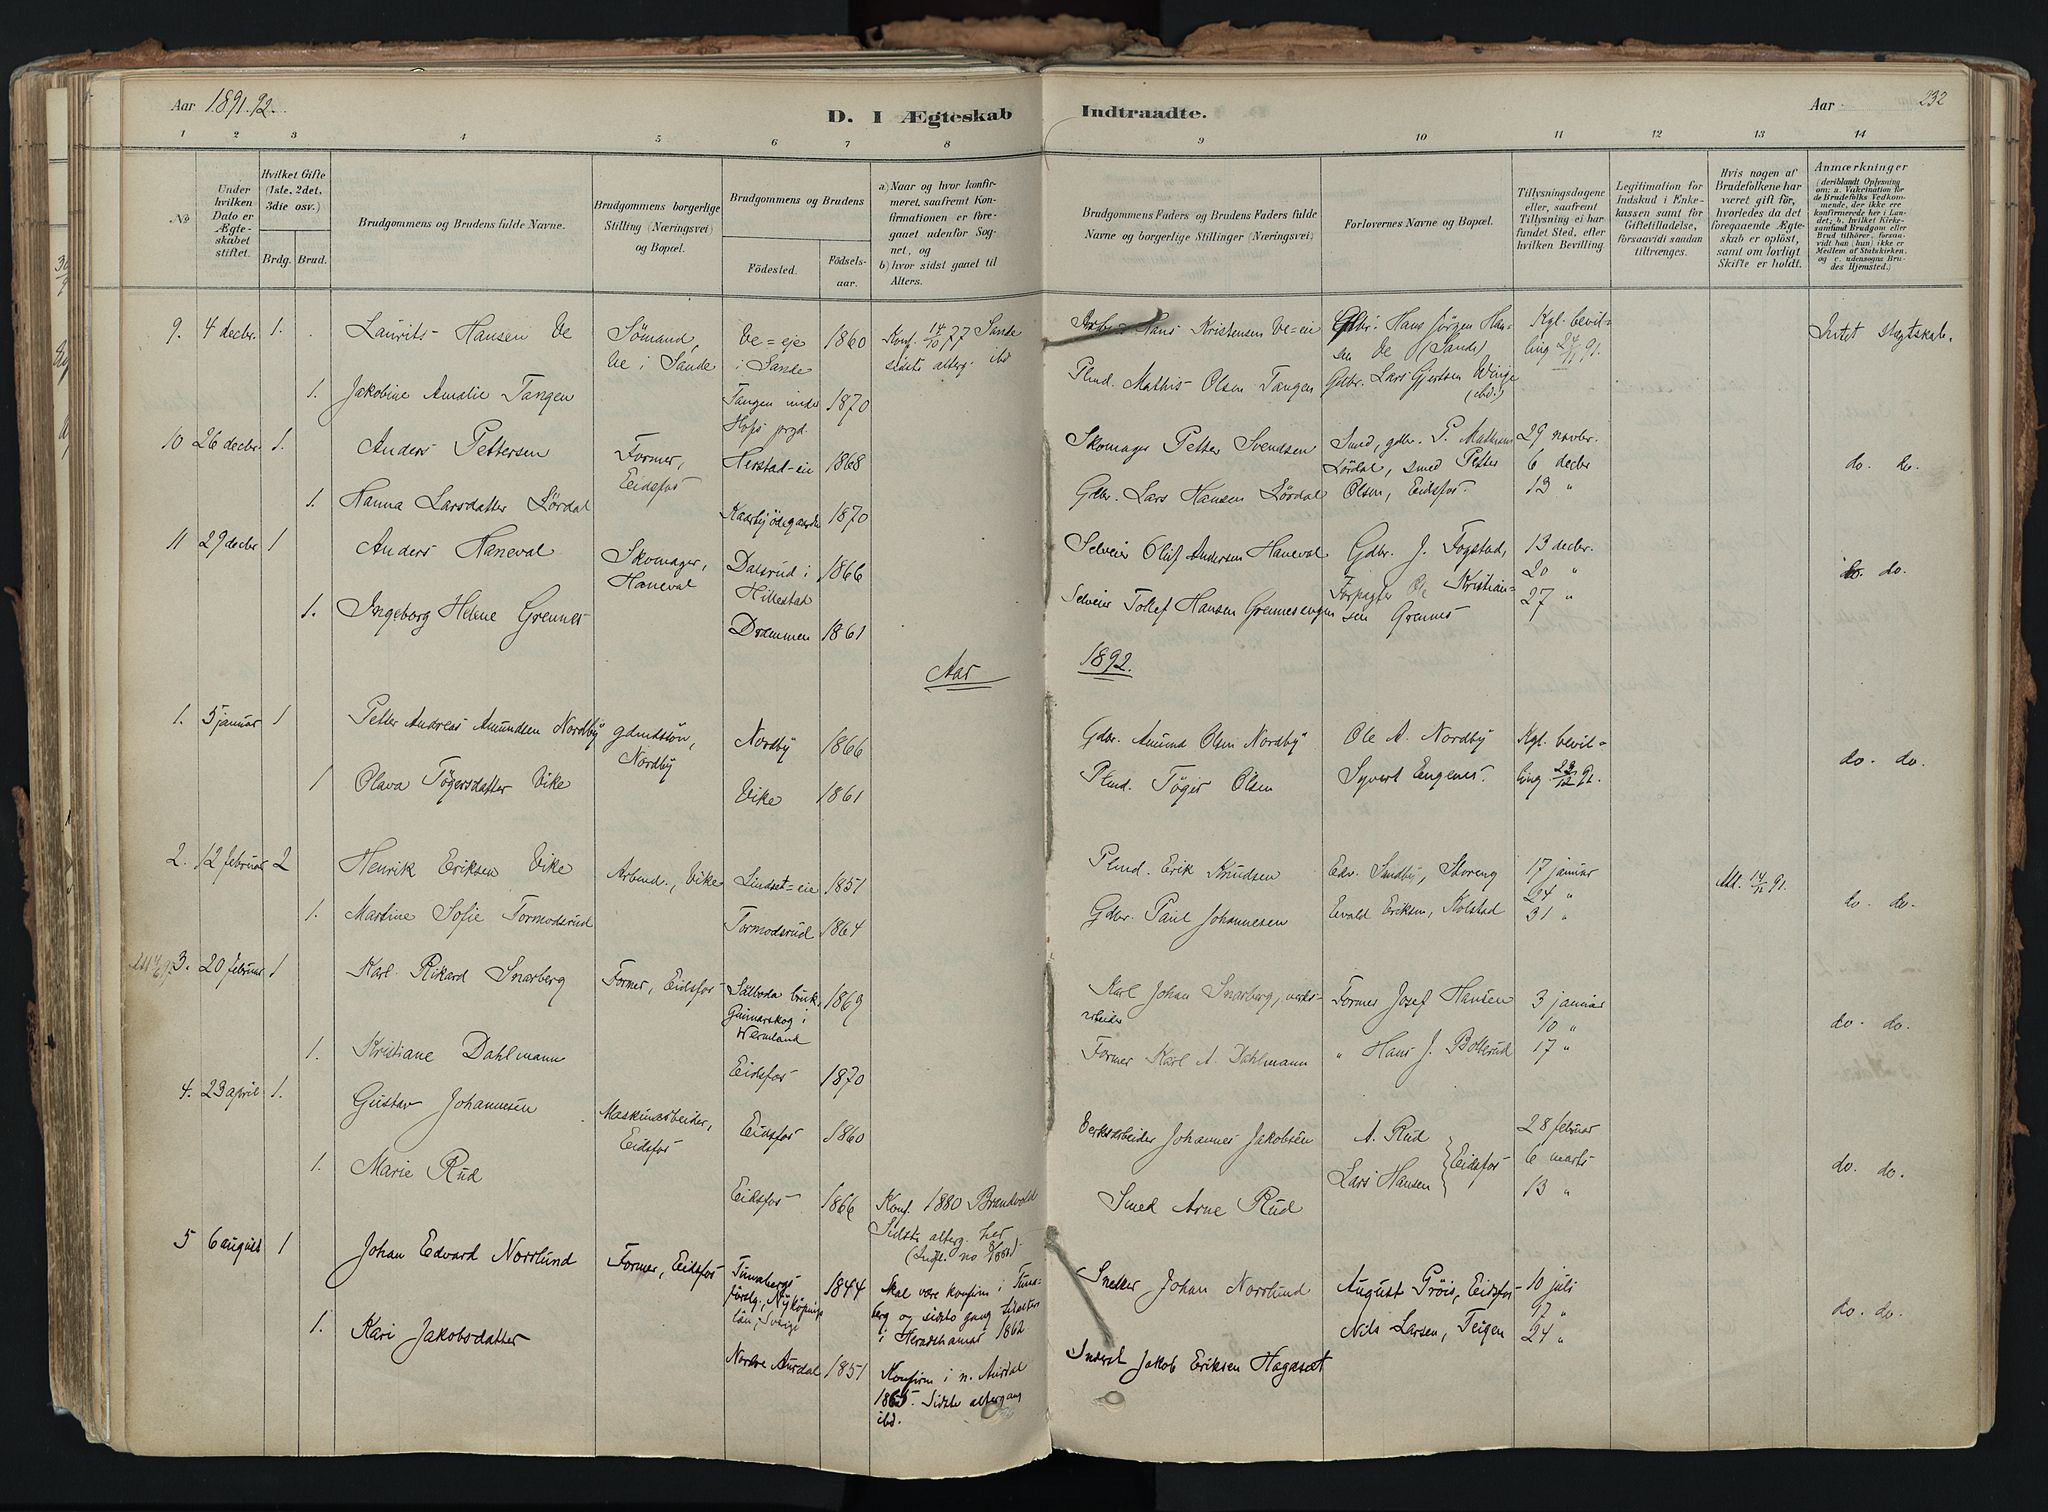 Aar 1891.92.
D. I Ægteskab
Indtraadte.
Aar
232
1 2 3 4 5 6 7 8 9 10 11 12 13 14
No
Under hvilken Dato er Ægteskabet stiftet.
Hvilket Gifte (1ste, 2det, 3die osv.)
Brdg. Brud.
Brudgommens og Brudens fulde Navne.
Brudgommens borgerlige Stilling (Næringsvei) og Bopæl.
Brudgommens og Brudens
Födested.
Födselsaar.
a) Naar og hvor konfirmeret, saafremt Konfirmationen er foregaaet udenfor Sognet, og
b) hvor sidst gaaet til Alters.
Brudgommens Faders og Brudens Faders fulde Navne og borgerlige Stillinger (Næringsvei)
Forlovernes Navne og Bopæl.
Tillysningsdagene eller, saafremt Tillysning ei har fundet Sted, efter hvilken Bevilling.
Legitimation for Indskud i Enkekassen samt for Giftetilladelse, forsaavidt saadan tiltrænges.
Hvis nogen af Brudefolkene har været gift før, hvorledes da det foregaaende Ægteskab er oplöst, samt om lovligt Skifte er holdt.
Anmærkninger
(deriblandt Oplysning om: a. Vakcination for de Brudefolks Vedkommende, der ikke ere konfirmerede her i Landet; b. hvilket Kirkesamfund Brudgom eller Brud tilhörer, forsaavidt han (hun) ikke er Medlem af Statskirken, og c. udensogns Brudes Hjemsted.)
9. 4 decbr. 1. Laurits Hansen Ve
Sömand, Ve i Sande
Ve=eje i Sande 1860
Konf. 14/10 77 Sande
sidste alterg. ibd
Hans Kristensen Ve=eie
Gdbr. Hans Jörgen Hansen Ve (Sande)
Kgl. bevilling 24/11 91.
Intet slegtskab.
1. Jakobine Amalie Tangen
Tangen under Hofs prgd. 1870
Plmd. Mathis Olsen Tangen
Gdbr. Lars Gjertsen Winge (ibd.)
10 26 decbr. 1. Anders Pettersen
Former, Eidsfos
Herstad-eie 1868
Skomager Petter Svendsen
Smed, gdbr. P. Mathisen
Lördal, smed Petter
Olsen, Eidsfos.
29 novbr.
6 decbr
13 "
do. do.
1. Hanna Larsdatter Lördal
Kaarbyödegaarden 1870
Gdbr. Lars Hansen Lördal
11 29 decbr 1 Anders Haneval
Skomager, Haneval
Dalsrud i Hillestad 1866
Selveier Oluf Andersen Haneval
Gdbr. J. Fogstad,
Forpagter Ole Kristiansen Grennes
13 decbr.
20 "
27 "
do. do.
1. Ingeborg Helene Grennes
Drammen 1861
Selveier Tollef Hansen Grennesengen
Aar
1892.
1. 5 januar 1 Petter Andreas Amundsen Nordby
gdmdssön, Nordby
Nordby 1866
Gdbr. Amund Olsen Nordby
Ole A. Nordby
Kgl. bevilling 23/12 91.
do. do.
1 Olava Tögersdatter Vike
Vike 1861
Plmd. Töger Olsen
Syvert Engenes.
2. 12 februar 2 Henrik Eriksen Vike
Arbmd., Vike
Lindset=eie 1851
Plmd. Erik Knudsen
Edv. Sundby, Storeng
17 januar
24 "
31 "
Att. 14/11 91.
do. do.
1. Martine Sofie Tormodsrud
Tormodsrud 1864
Gdbr. Paul Johannesen
Evald Eriksen, Kolstad
3. 20 februar 1 Karl Rikard Snarberg
Former, Eidsfos
Sälboda bruk Gunnarskog i Wermland 1869
Karl Johan Snarberg, verksarbeider
Former Josef Hansen
3 januar
10 "
17 "
do. do.
1. Kristiane Dahlmann
Eidsfos 1870
Former Karl A. Dahlmann
" Hans J. Bolerud
4. 23 april 1. Gustav Johannesen
Maskinarbeider, Eidsfos
Eidsfos 1860
Verksarbeider Johannes Jakobsen
A. Rud
Lars Hansen } Eidsfos
28 februar
6 marts
13 "
do. do.
1. Marie Rud
Eidsfos 1866
Konf. 1880 Brandvold
Sidste alterg. her
Smed Arne Rud
5 6 august 1 Johan Edvard Norrlund
Former, Eidsfos
Tunabergs forslg., Nyköpings län, Sverige 1844
Skal være konfirm i Tunaberg og sidste gang til alters i 1862
Snekker Johan Norrlund
August Fröis, Eidsfos
10 juli
17 "
24 "
do. do.
1. Kari Jakobsdatter
Nordre Aurdal 1851
Konfirm i n. Aurdal
1865. Sidste altergang
ibd.
Inderst Jakob Eriksen Hagaset
Nils Larsen, Teigen